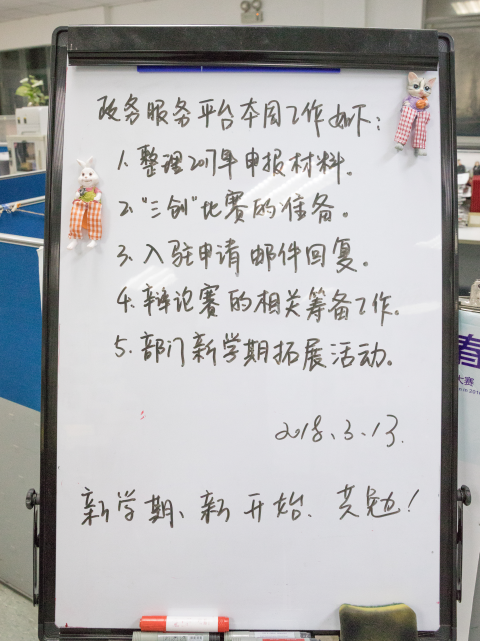 政务服务平台本周工作如下：
1、整理2017年申报材料。
2、"三创"比赛的准备。
3、入驻申请邮件回复。
4、辩论赛的相关筹备工作。
5、部门新学期拓展活动。
2018.3.13.
新学期、新开始、共勉！
春
大赛